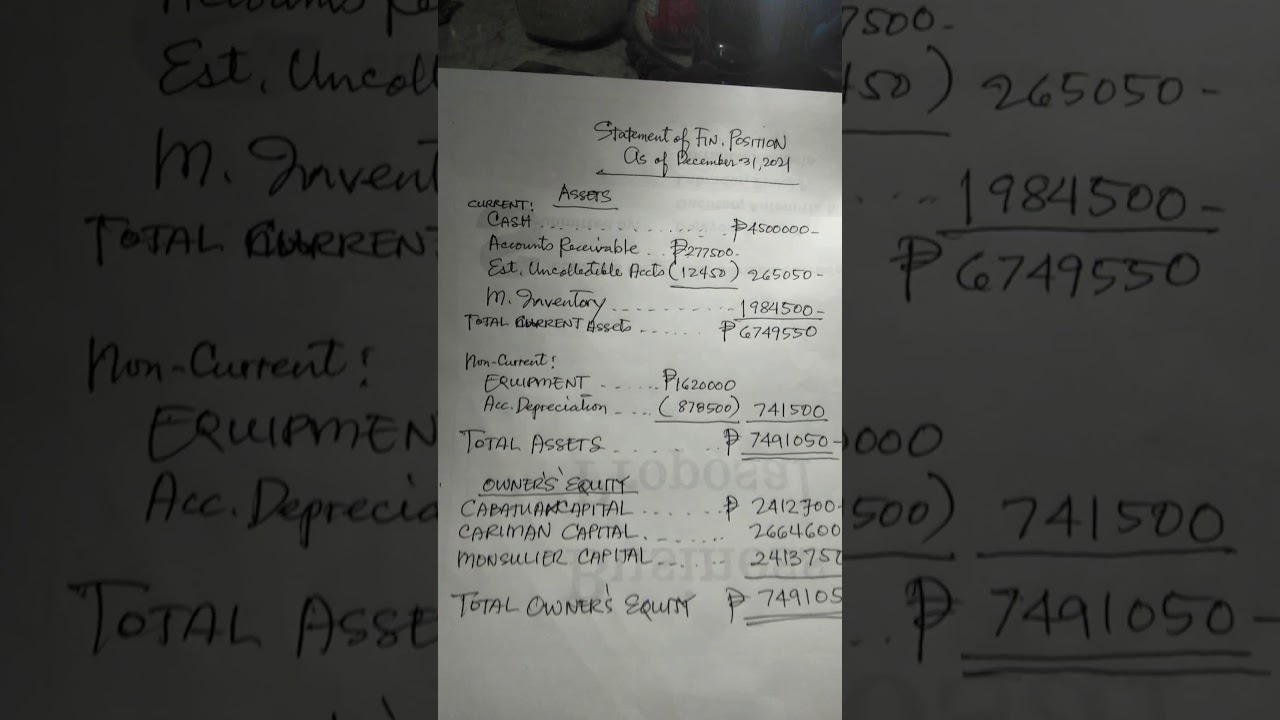 Statement of FIN. POSITION
As of December 31, 2021
ASSETS
CURRENT:
CASH .................... ₱4500000-
Accounts Receivable .. ₱277500-
Est. Uncollectible Accts (12450) 265050-
M. Inventory ............. 1984500-
TOTAL CURRENT Assets ...... ₱6749550
Non-Current:
EQUIPMENT ...... ₱1620000
Acc. Depreciation .... (878500) 741500
TOTAL ASSETS ........ ₱ 7491050-
OWNER'S EQUITY
CABATUAN CAPITAL ...... ₱ 2412700-
CARIMAN CAPITAL ....... 2664600
MONSULIER CAPITAL ...... 2413750
TOTAL OWNER'S EQUITY ₱ 749105